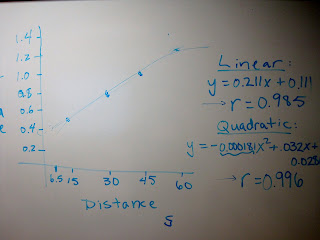 1.4
1.2
1.0
0.8
0.6
0.4
0.2
6.5 15 30 45 60
Distance
5
Linear:
y = 0.211x + 0.111
→ r = 0.985
Quadratic:
y = -0.000181x² + .032x +
→ r = 0.996